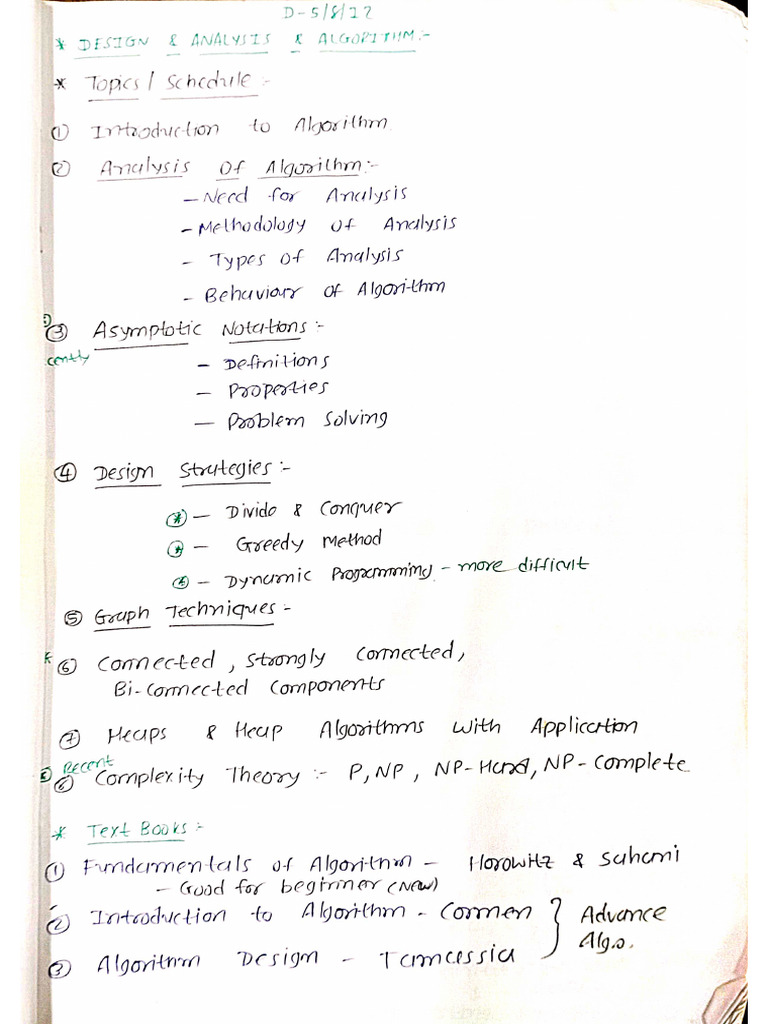 D-5/8/12
* DESIGN & ANALYSIS & ALGORITHM:-
* Topics / Schedule :-
① Introduction to Algorithm
② Analysis Of Algorithm:-
- Need for Analysis
- Methodology of Analysis
- Types of Analysis
- Behaviour of Algorithm
③ Asymptotic Notations:-
cently
- Definitions
- Properties
- Problem Solving
④ Design Strategies :-
* - Divide & Conquer
* - Greedy Method
* - Dynamic Programming - more difficult
⑤ Graph Techniques -
⑥ Connected, Strongly Connected,
Bi-connected Components
⑦ Heaps & Heap Algorithms with Application
Recent
⑧ Complexity Theory :- P, NP, NP-Hard, NP-Complete
* Text Books :-
① Fundamentals of Algorithm - Horowitz & Sahani
- Good for beginner (New)
② Introduction to Algorithm - Cormen } Advance
Algo.
③ Algorithm Design - Tamassia